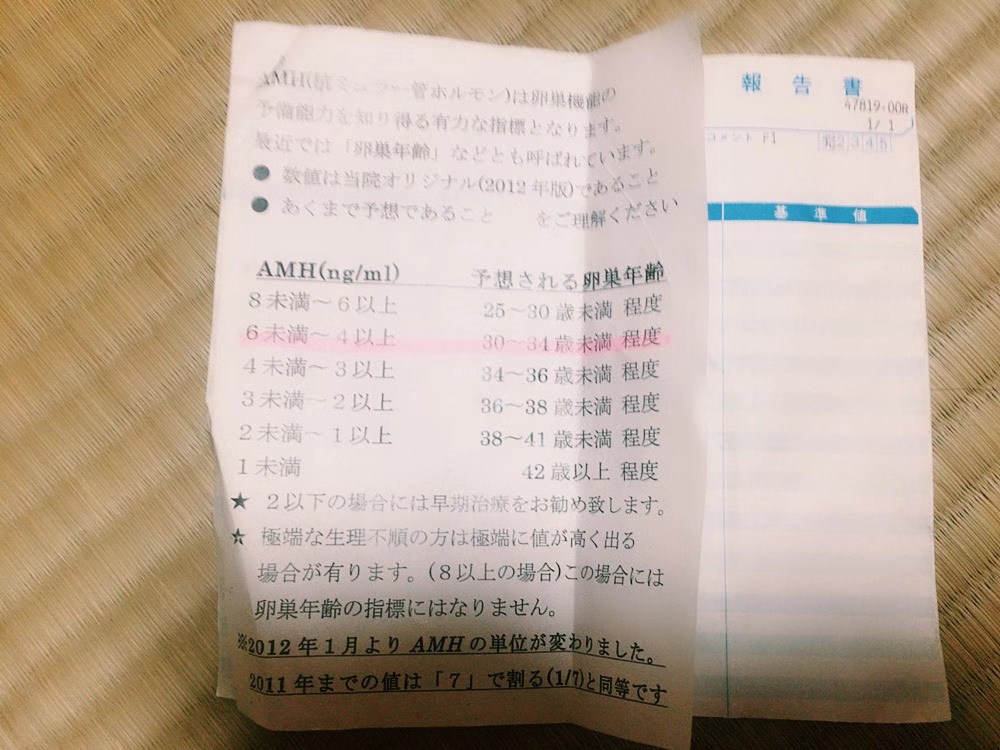 AMH(抗ミュラー管ホルモン)は卵巣機能の
予備能力を知り得る有力な指標となります。
最近では「卵巣年齢」などとも呼ばれています。
● 数値は当院オリジナル(2012年版)であること
● あくまで予想であること　をご理解ください
AMH(ng/ml)　予想される卵巣年齢
8未満～6以上　25～30歳未満 程度
6未満～4以上　30～34歳未満 程度
4未満～3以上　34～36歳未満 程度
3未満～2以上　36～38歳未満 程度
2未満～1以上　38～41歳未満 程度
1未満　42歳以上 程度
★ 2以下の場合には早期治療をお勧め致します。
★ 極端な生理不順の方は極端に値が高く出る
場合が有ります。(8以上の場合)この場合には
卵巣年齢の指標にはなりません。
※2012年1月よりAMHの単位が変わりました。
2011年までの値は「7」で割る(1/7)と同等です
報告書
47819-00R
1/1
コメント F1
2 3 4 5
基準値